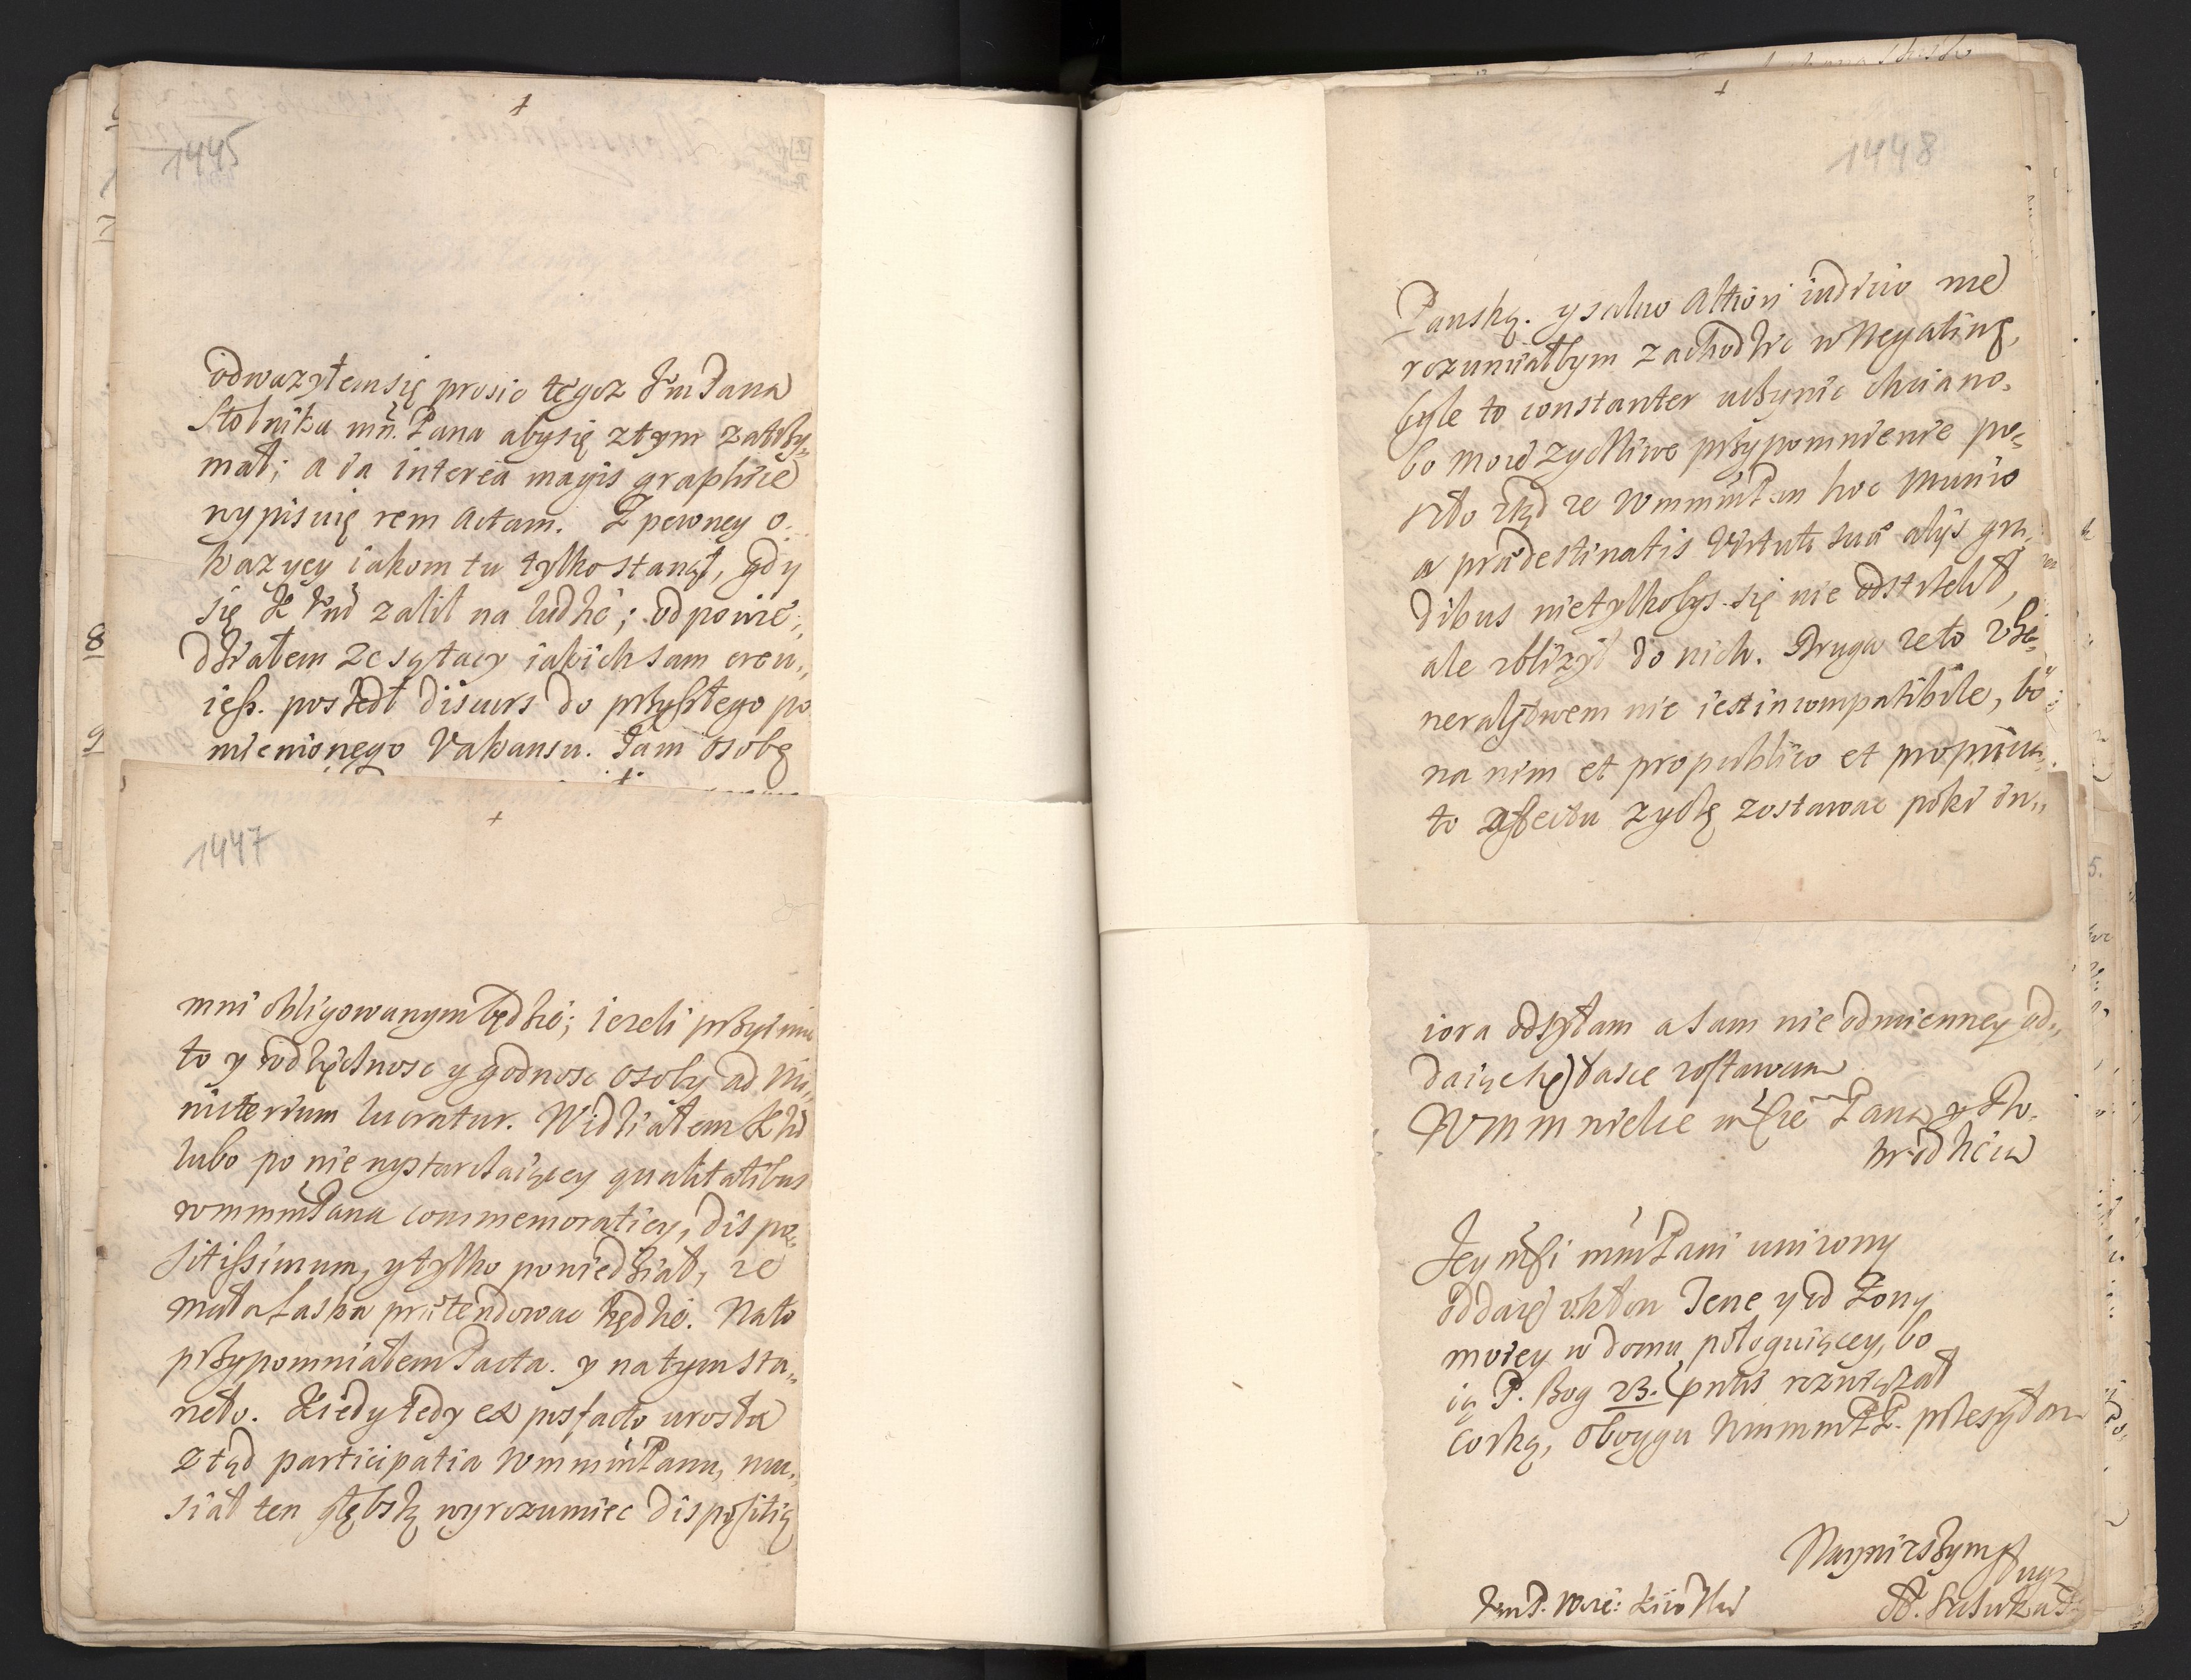 1445
odwazyłem się prosic tegoz JmPana
Stolnika mń. Pana aby się ztym zatrzy
mał; a ia interea magis graphice
wypisuię rem actam. Z pewney o
kazycy iakom tu tylko stanął, gdy
się zalił na ludzi; odpowie
działem ze są tacy iakich sam creu
iesz. poszedł discurs do przyszłego po
mienionego Vakansu. Tam osobę
8
9
1447
mni obligowanym będzie; iezeli przyimie
to y wdzięcznosc y godnosc osoby ad Mi
nisterium lucratur. Widziałem
lubo po niewystarczaiącey qualitatibus
wmmmPana commemoraticy, dispo
sitissimum, y tylko powiedział, ze
mała łaska prætendowac będzie. Na to
przypomniałem Pacta. y na tym sta
nęło. Kiedy tedy ex post facto urosła
ztąd participatia WmmmPanu, mu
siał ten głębszą wyrozumiec dispositią
1448
Panską. y salvo altiori iudicio nie
rozumiałbym zachodzic w Negativę,
byle to constanter uczynic chciano.
bo moie zyczliwe przypomnienie po
szło ztąd ze WmmmPan hoc munio
a prædestinatis Virtuti suæ alijs gra
dibus nie tylkobys się nie odstrzelił,
ale zblizył do nich. Druga ze to z Ge
neralstwem nie iest incompatibile, bo
na nim et pro publico et pro priva
to affectu zyczę zostawac poki in
iora odsyłam a sam nieodmienney od
daiąc się łasce zostawam
Wm m wielce mśćie Pana y Do
brodzieia
Jey mści mmPani unizony
oddaię ukłon Jene y od Zony
moiey w domu pologuiącey, bo
ią P. Bog 23. pntis rozwiązał
corką, oboygu WmmmPP. przesyłam
Nayniszszym sługą